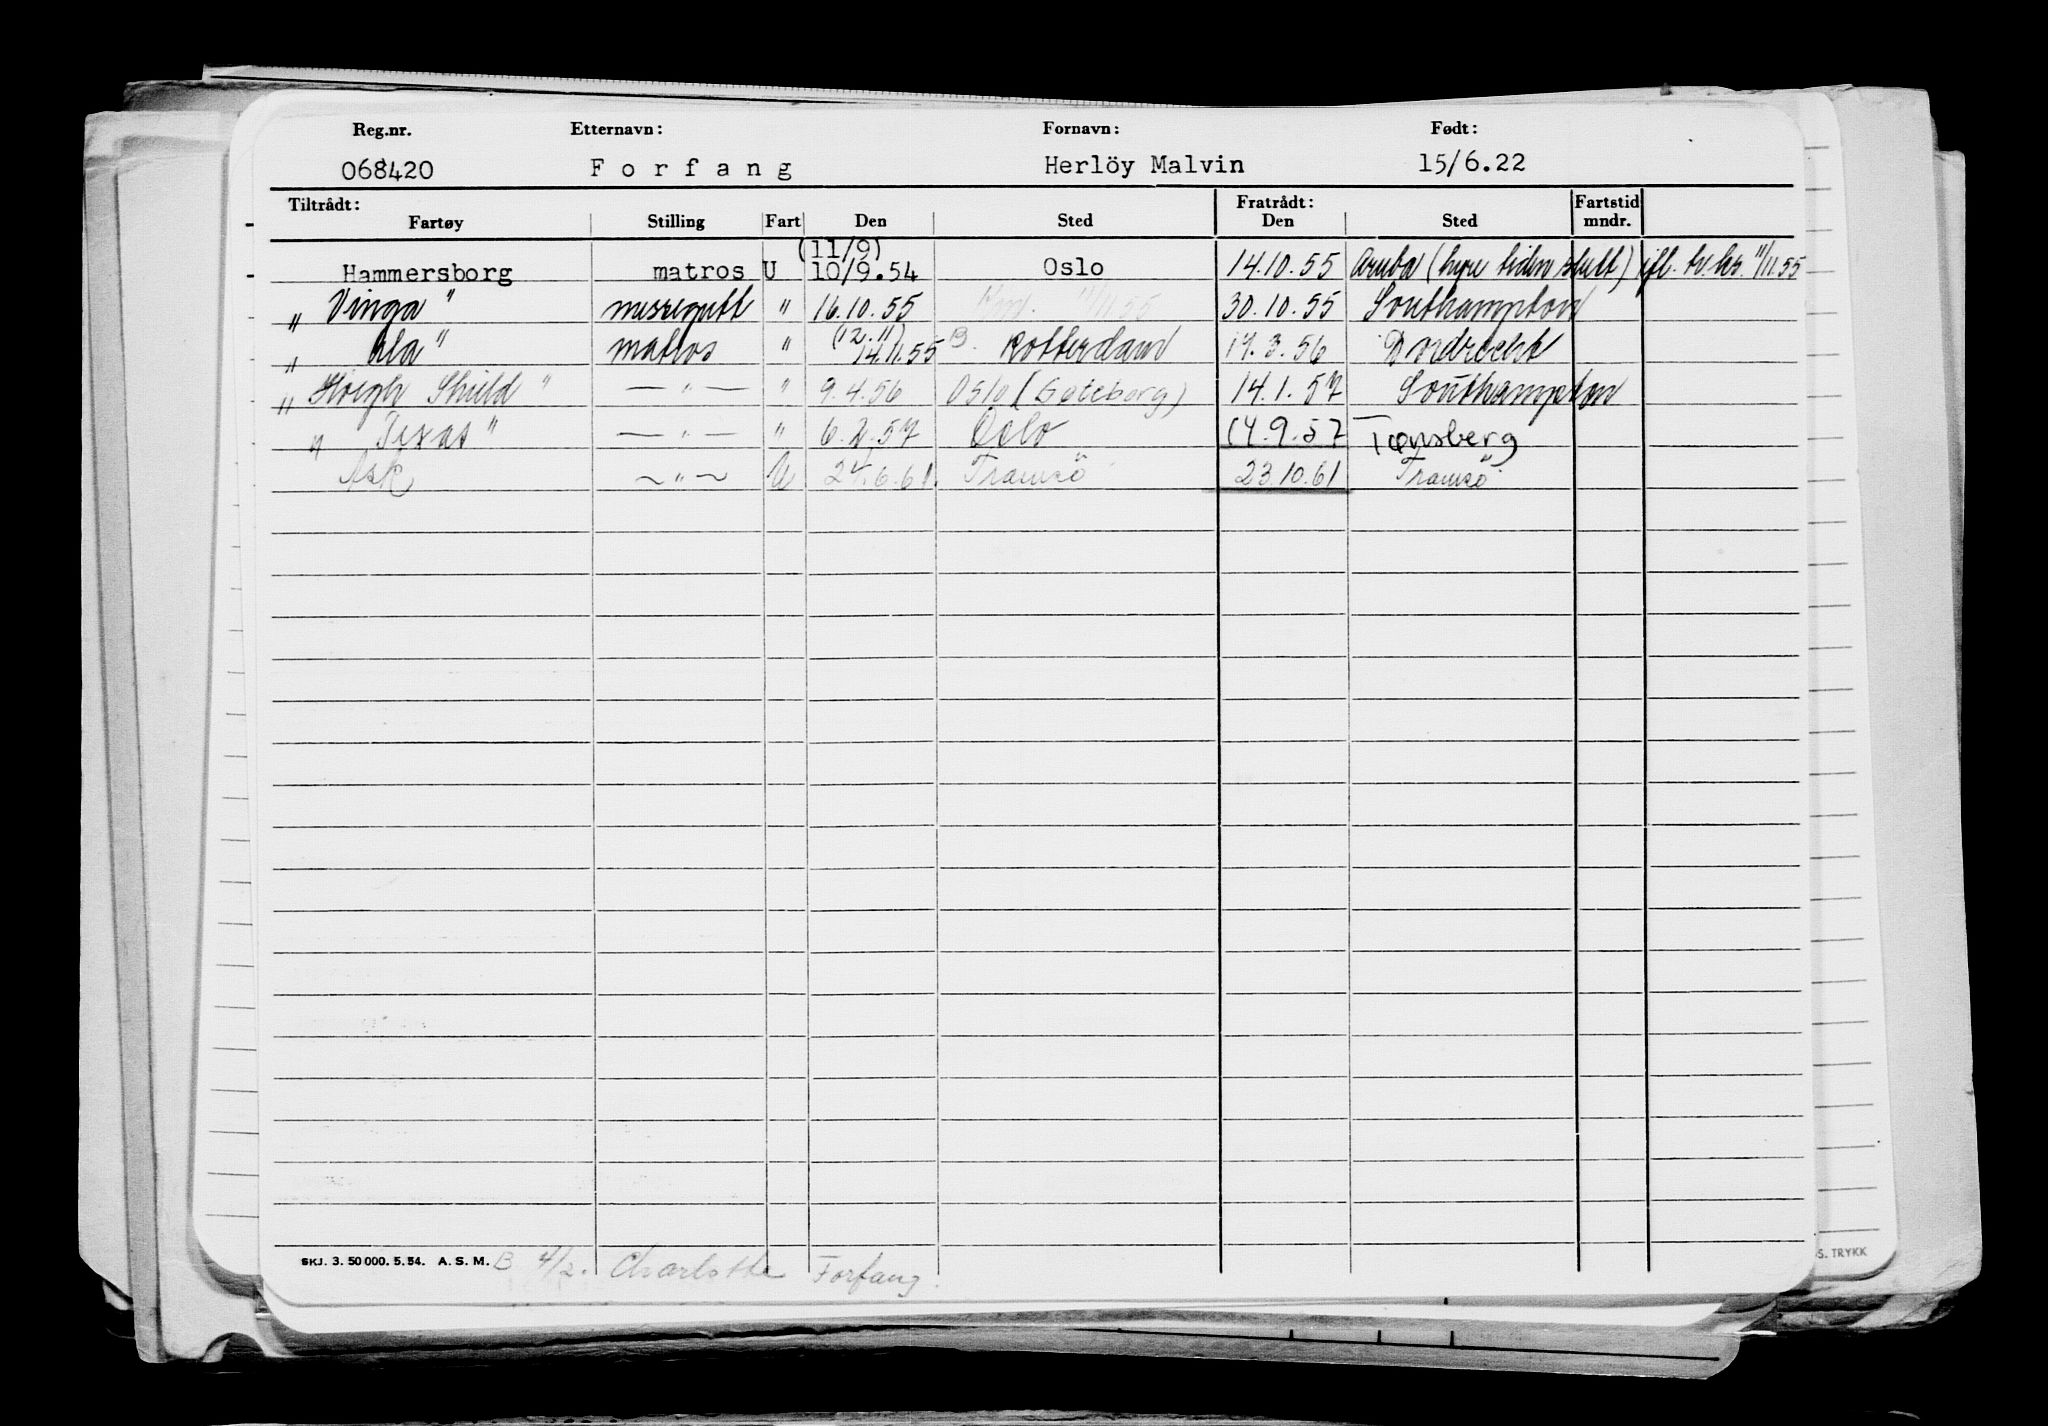 Reg.nr. Etternavn: Fornavn: Født:
068420 F o r f a n g Herlöy Malvin 15/6.22
Tiltrådt: Fratrådt: Fartstid
Fartøy Stilling Fart Den Sted Den Sted mndr.
(11/9)
Hammersborg matros U 10/9.54 Oslo 14.10.55 Aruba (hyre tiden slutt) ifl. 11/11.55
" Vinga " messegutt " 16.10.55 11/11 55 30.10.55 Southampton
(12.11)
" Ala " matros " 14.11.55 B. Rotterdam 17.3.56 Dordrecht
" Höegh Shield " — " — " 9.4.56 Oslo (Göteborg) 14.1.57 Southampton
" Texas " — " — " 6.2.57 Oslo 14.9.57 Tønsberg
Ask — " — U 24.6.61. Tromsö 23.10.61 Tromsö
SKJ. 3. 50 000. 5. 54. A. S. M. B 4/2. Charlotte Forfang.
S. TRYKK